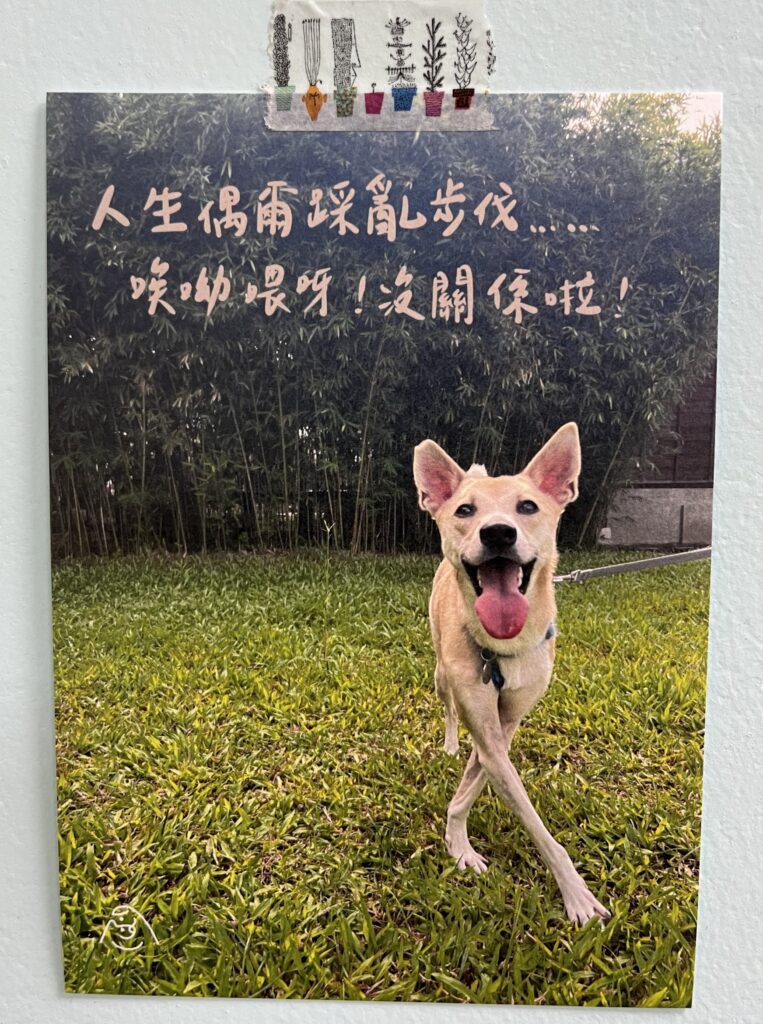 人生偶爾踩亂步伐……
唉呦喂呀!沒關係啦!